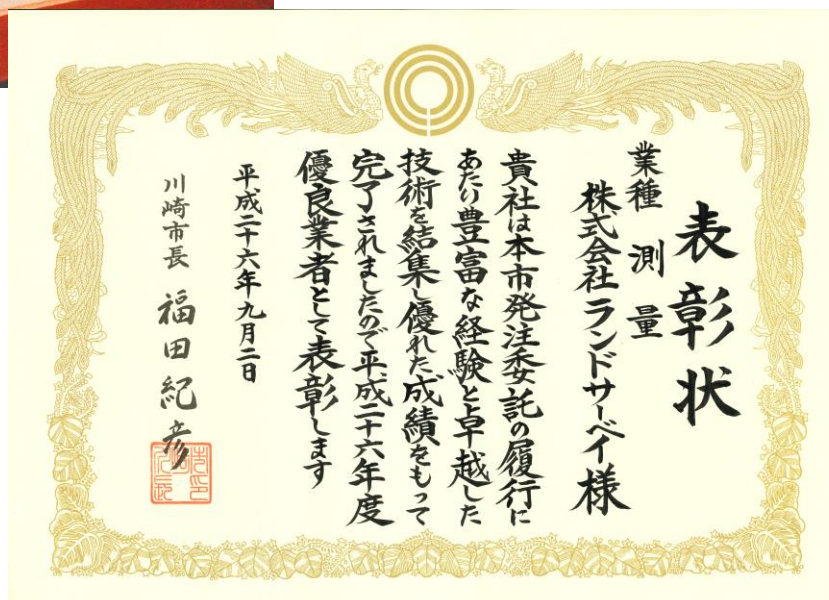 表彰状
業種 測量
株式会社ランドサーベイ様
貴社は本市発注委託の履行に
あたり豊富な経験と卓越した
技術を結集し優れた成績をもって
完了されましたので平成二十六年度
優良業者として表彰します
平成二十六年九月二日
川崎市長 福田紀彦